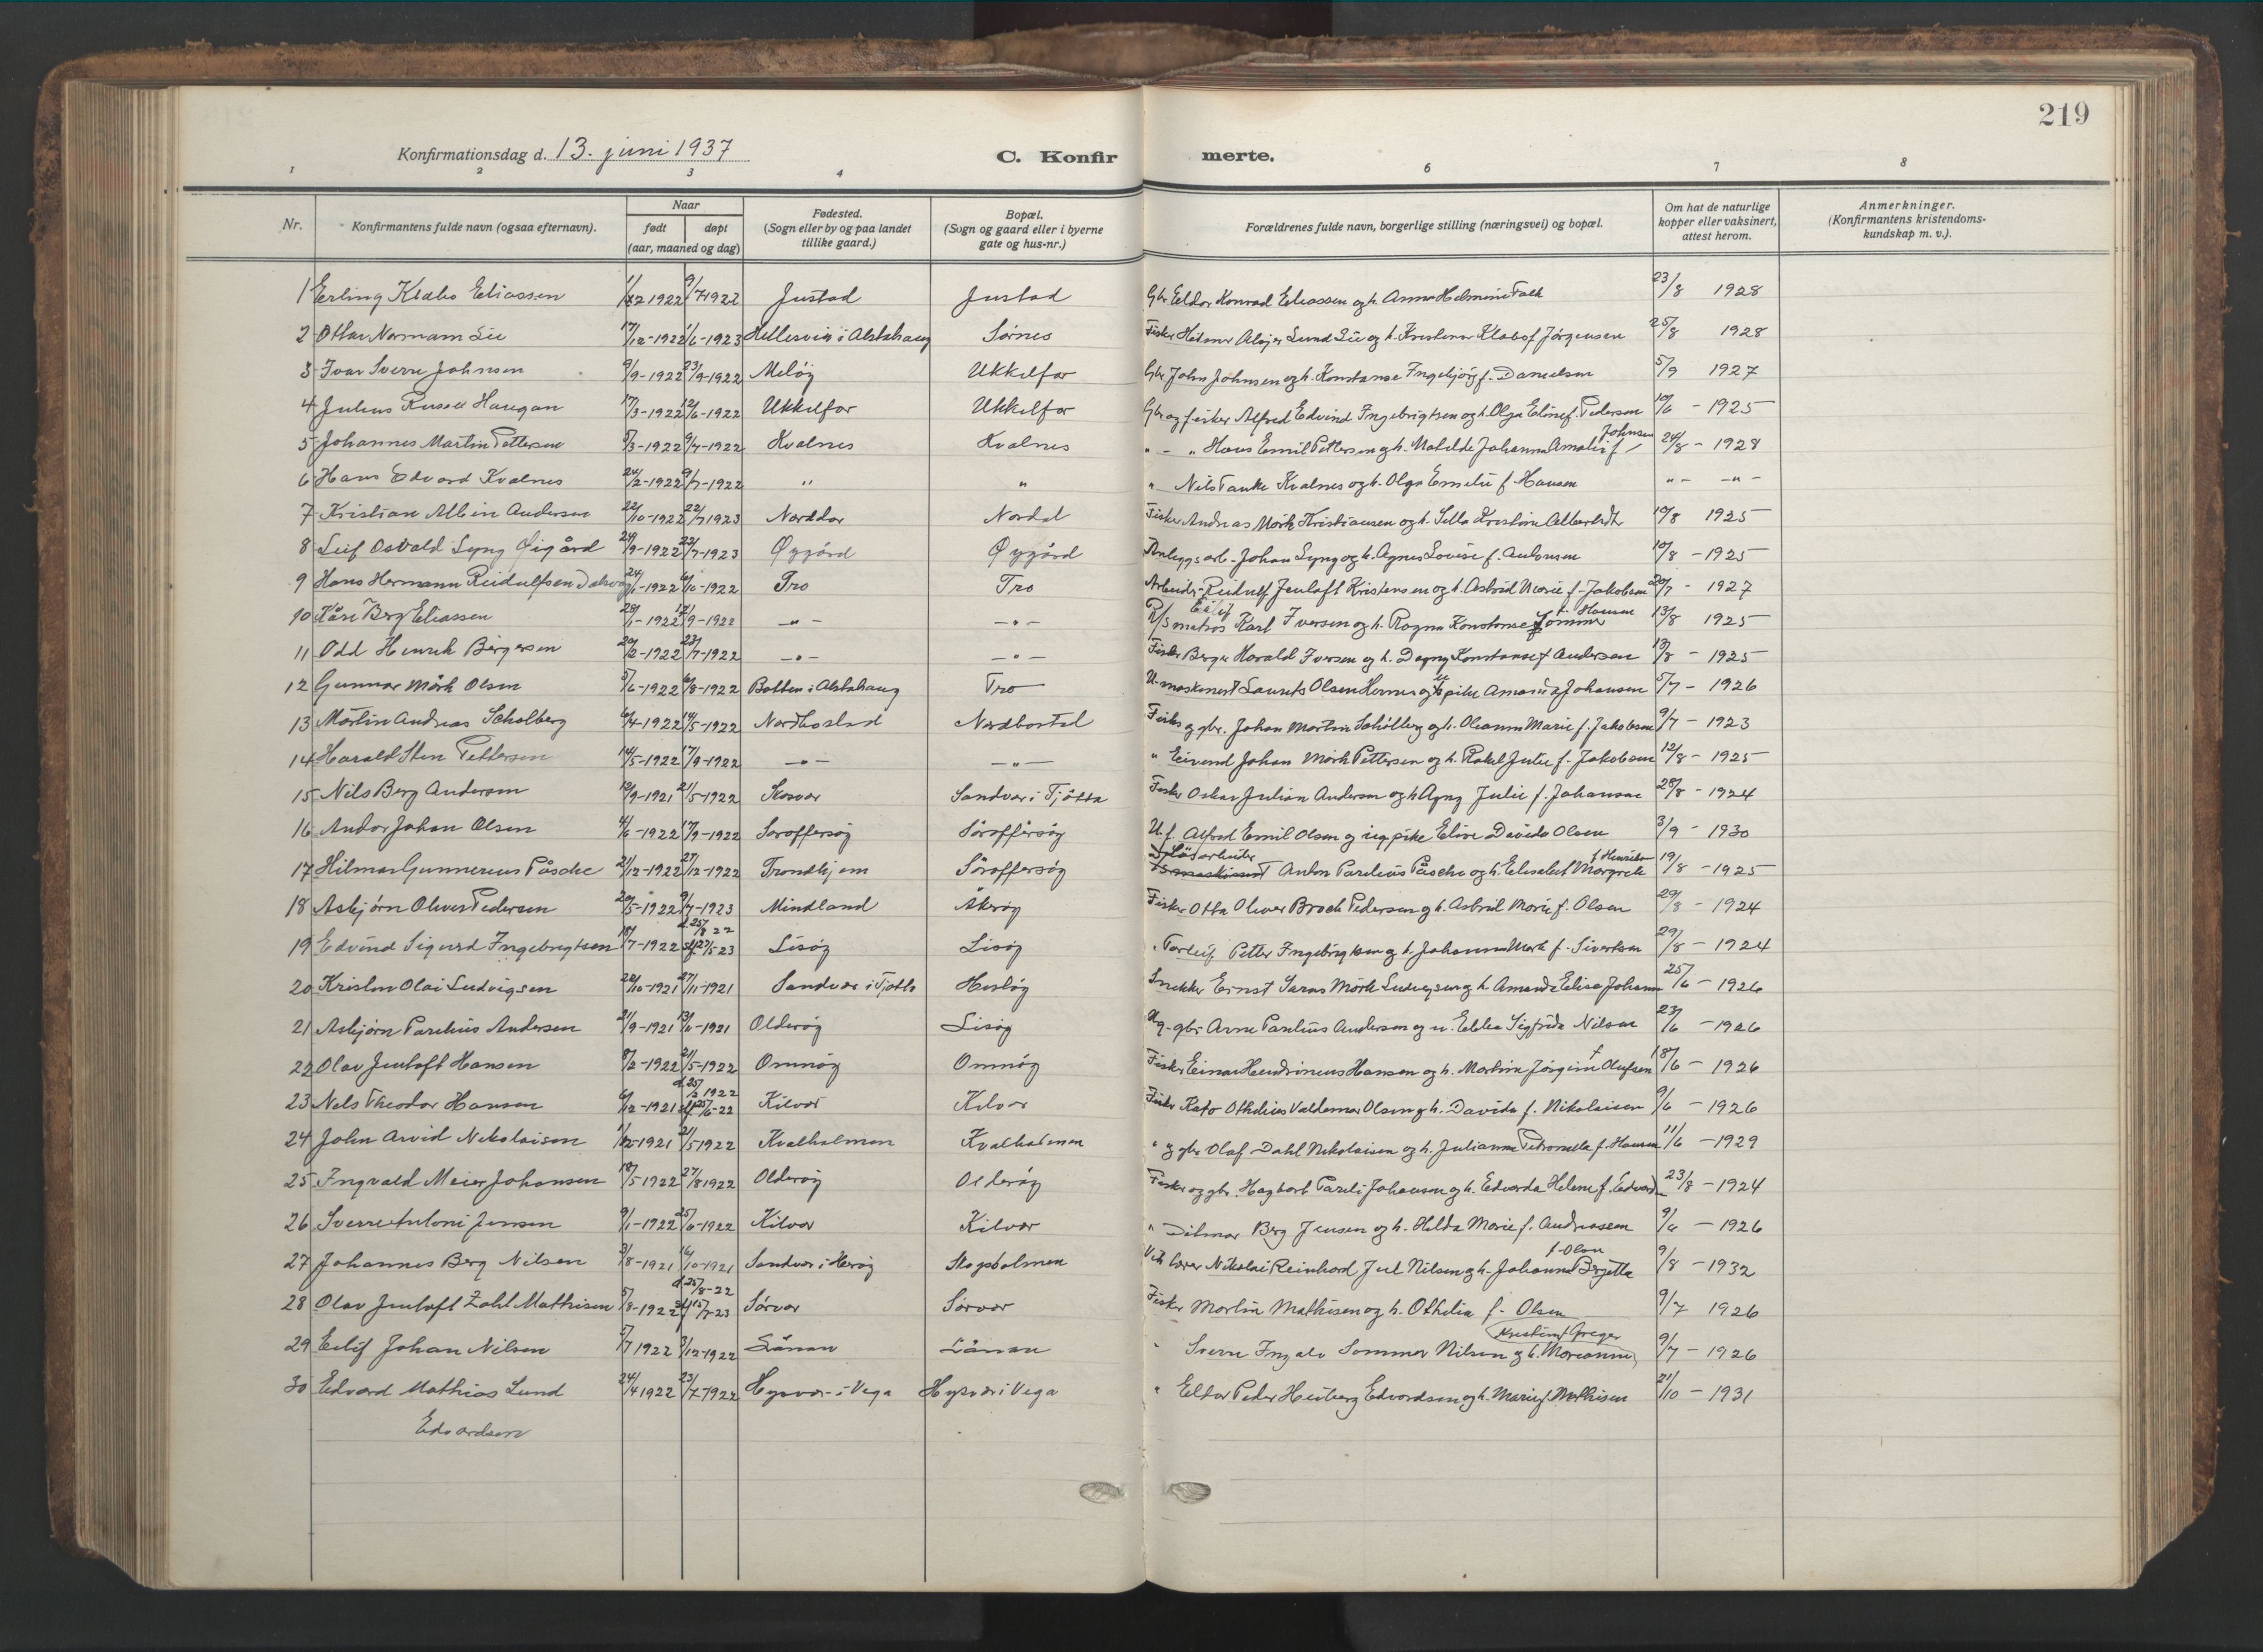 219
Konfirmationsdag d. 13. juni 1937
C. Konfir merte.
1 2 3 4 6 7 8
Nr. Konfirmantens fulde navn (ogsaa efternavn). Naar født døpt (aar, maaned og dag) Fødested. (Sogn eller by og paa landet tillike gaard.) Bopæl. (Sogn og gaard eller i byerne gate og hus-nr.) Forældrenes fulde navn, borgerlige stilling (næringsvei) og bopæl. Om hat de naturlige kopper eller vaksinert, attest herom. Anmerkninger. (Konfirmantens kristendoms-kundskap m. v.).
1 Erling Eliassen 1/12 1922 9/7 1922 Justad Justad Gbr Eldor Konrad Eliassen og h. Anna Helmine Falk 23/8 1928
2 Ottar Normann Lie 17/12-1922 1/6-1923 Hellesvik i Alstahaug Sørnes Fisker Hilmar Lund Lie og h. Kristina f. Jørgensen 25/8 1928
3 Ivar Sverre Johnsen 9/9-1922 23/9-1922 Meløy Ukkelfar Gbr John Johnsen og h. Konstanse Ingebjørg f. Danielsen 5/9 1927
4 Julius Haugan 17/3-1922 12/6-1922 Ukkelfar Ukkelfar Gbr og fisker Alfred Edvind Ingebrigtsen og h. Olga Eline f. Pedersen 10/6 - 1925
5 Johannes Martin Pettersen 5/3-1922 9/7-1922 Kvalnes Kvalnes " - " Hans Emil Pettersen og h. Matilde Johanna Amalie f. Johnsen 24/8 - 1928
6 Hans Edvard Kvalnes 24/2-1922 9/7-1922 " " " Nils Tanke Kvalnes og h. Olga Emelie f. Hansen " - - " -
7 Kristian Albin Andersen 22/10-1922 22/7 1923 Norddor Nordal Fisker Andreas Mørk Kristiansen og h. Silla Kristine 10/8 1925
8 Leif Osvald Lyng Øigård 24/9-1922 23/7-1923 Øygård Øygård Anleggsarb. Johan Lyng og h. Agnes Lovise f. Antonsen 10/8 - 1925
9 Hans Hermann Reidulfsen 24/6-1922 6/10-1922 Tro Tro Arbeider Reidulf Jentoft Kristensen og h. Astrid Marie f. Jakobsen 20/7 - 1927
10 Kåre Berg Eliassen 28/1-1922 17/9-1922 - " - - " - matros Karl Eilif Iversen og h. Ragna Konstanse f. Hansen 13/8 1925
11 Odd Henrik Bergersen 20/2-1922 23/7-1922 - " - - " - Fisker Berger Harald Iversen og h. Dagny Konstanse f. Andersen 13/8 - 1925
12 Gunnar Mørk Olsen 5/6-1922 6/8-1922 Botten i Alstahaug Tro U. maskinist Laurits Olsen og pike Amanda Johansen 5/7 - 1926
13 Martin Andreas Schølberg 6/4-1922 14/5-1922 Nordbostad Nordbostad Fisker og gbr. Johan Martin Schølberg og h. Oleanna Marie f. Jakobsen 9/7 - 1923
14 Harald Sten Pettersen 14/5-1922 17/9-1922 - " - - " - " Eivind Johan Mørk Pettersen og h. Rakel Julie f. Jakobsen 12/8 - 1925
15 Nils Berg Andersen 12/9-1921 21/5-1922 Skosvær Sandvær i Tjøtta Fisker Oskar Julian Andersen og h. Agny Julie f. Johansen 28/8 - 1924
16 Andor Johan Olsen 4/6-1922 17/9-1922 Søroffersøy Søroffersøy U. f. Alfred Emil Olsen og ug. pike Elise Davida Olsen 3/9 - 1930
17 Hilmar Gunnerius Påsche 21/12-1922 27/12-1922 Trondhjem Søroffersøy Løsarbeider Anton Parelius Påsche og h. Elisabet Margrete f. Henriksen 19/8 - 1925
18 Asbjørn Oliver Pedersen 20/5-1922 9/7-1923 Mindland Åkerøy Fisker Otto Oliver Broch Pedersen og h. Astrid Marie f. Olsen 29/8 - 1924
19 Edvind Sigurd Ingebrigtsen 18/7-1922 d. 25/8 22 stf. 27/5 23 Lisøy Lisøy " Torleif Petter Ingebrigtsen og h. Johanna Mørk f. Sivertsen 29/8 - 1924
20 Kristen Olai Ludvigsen 22/10-1921 27/11-1921 Sandvær i Tjøtta Husløy Snekker Ernst Mørk Ludvigsen og h. Amanda Elisa 25/6 - 1926
21 Asbjørn Parelius Andersen 21/9-1921 13/6-1921 Olderøy Lisøy gbr Arne Parelius Andersen og Sigfrida Nilsen 23/6 - 1926
22 Olav Jentoft Hansen 8/2-1922 21/5-1922 Omnøy Omnøy Fisker Einar Hendrineus Hansen og h. Martine Jørgine f. Olufsen 18/6 - 1926
23 Nils Theodor Hansen 6/12-1921 d. 25/2 1922 stf. 25/6-22 Kilvær Kilvær Fisker Kato Othelius Valdemar Olsen og h. Davida f. Nikolaisen 9/6 - 1926
24 John Arvid Nikolaisen 1/12-1921 21/5 1922 Kvalholmen Kvalholmen " og gbr Olaf Dahl Nikolaisen og h. Julianna Petronella f. Hansen 11/6 - 1929
25 Ingvald Meier Johansen 18/5-1922 27/8 1922 Olderøy Olderøy Fisker og gbr. Hagbart Pareli Johansen og h. Edvarda Helene f. 23/8 - 1924
26 Sverre Antoni Jensen 9/1-1922 25/6-1922 Kilvær Kilvær " Ditmar Berg Jensen og h. Hilda Marie f. Andreassen 9/6 - 1926
27 Johannes Berg Nilsen 3/8-1921 16/10-1921 Sandvær i Herøy Skogsholmen lærer Nikolai Reinhard Juel Nilsen og h. Johanna Bergitta f. Olsen 9/8 - 1932
28 Olav Jentoft Zahl Mathisen 5/8-1922 d. 25/8-22 stf. 15/7-23 Sørvær Sørvær Fisker Martin Mathisen og h. Othelia f. Olsen 9/7 1926
29 Eilif Johan Nilsen 5/7 1922 3/12-1922 Lånan Lånan " Sverre Ingolv Sommer Nilsen og h. Marianne Kristine f. Greger 9/7 - 1926
30 Edvard Mathias Lund 24/4 1922 23/7-1922 Hysvær i Vega Hysvær i Vega " Eldor Peder Heiberg Edvardsen og h. Marie f. Mathisen 21/10 - 1931
Edvardsen